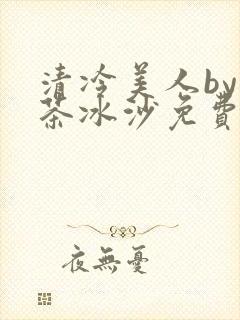 清冷美人by
茶冰沙免費
夜無憂